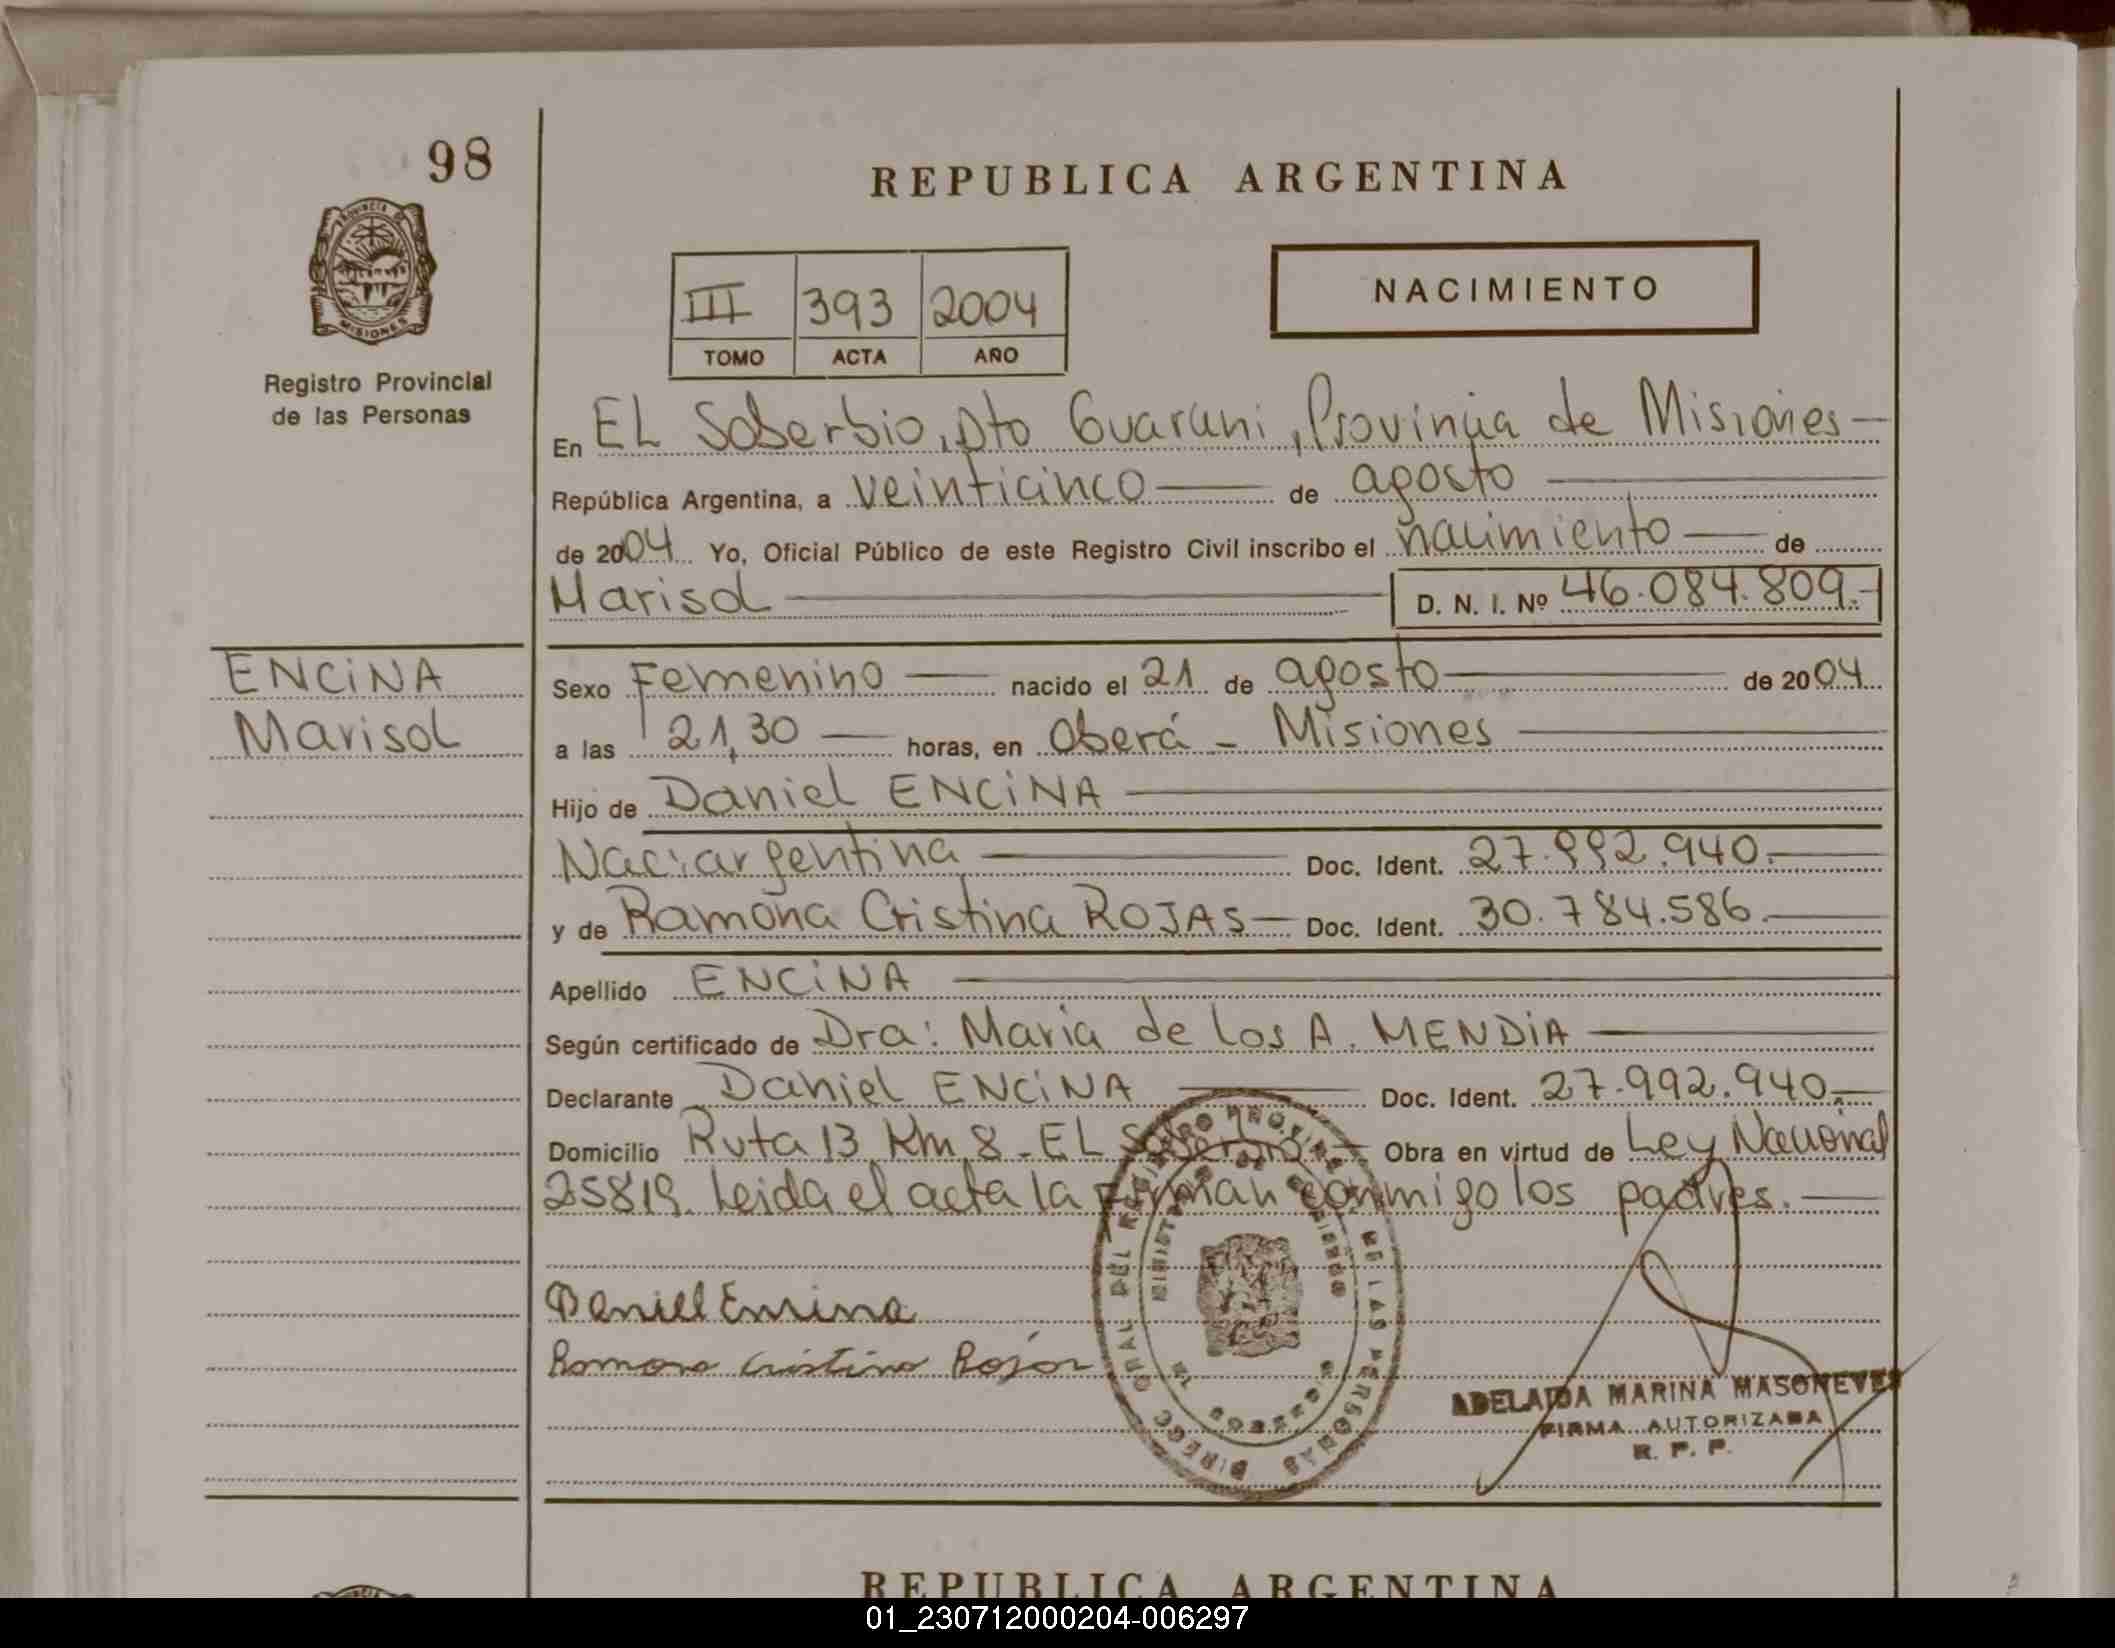 98
REPUBLICA ARGENTINA
PROVINCIA DE
MISIONES
Registro Provincial
de las Personas
III 393 2004
TOMO ACTA AÑO
NACIMIENTO
En EL Soberbio, Dto Guarani, Provincia de Misiones
República Argentina, a veinticinco de agosto
de 2004 Yo, Oficial Público de este Registro Civil inscribo el nacimiento de
Marisol D. N. I. Nº 46.084.809.-
ENCiNA
Marisol
Sexo Femenino nacido el 21 de agosto de 2004
a las 21,30 horas, en Oberá - Misiones
Hijo de Daniel ENCiNA
Nac: argentina Doc. Ident. 27.992.940.
y de Ramona Cristina ROJAS Doc. Ident. 30.784.586.
Apellido ENCiNA
Según certificado de Dra: Maria de los A. MENDiA
Declarante Daniel ENCiNA Doc. Ident. 27.992.940.
Domicilio Ruta 13 Km 8 - EL Soberbio Obra en virtud de Ley Nacional
25819. Leida el acta la firman conmigo los padres.
Daniel Encina
Ramona Cristina Rojas
ADELAIDA MARINA MASONEVES
FIRMA AUTORIZADA
R. P. P.
REPUBLICA ARGENTINA
01_230712000204-006297